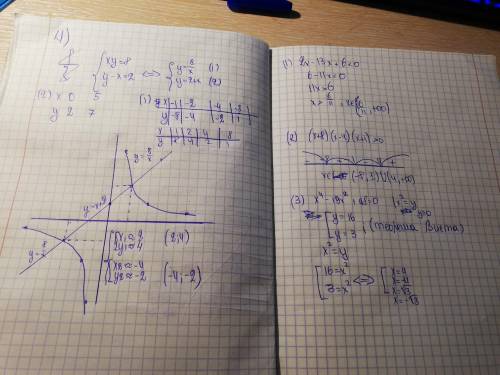 4)
{ xy=8
y-x=2 <=> { y=8/x (1)
y=2+x (2)
(2) x 0 5
y 2 7
(1) x | -1 | -2 | -4 | -8
y | -8 | -4 | -2 | -1
x | 1 | 2 | 4 | 8
y=8/x
y-x=2
y=8/x
{ x₁≈2
y₁≈4 (2;4)
{ x₂≈-4
y₂≈-2 (-4;-2)
(1) 2x-13x+6<0
6-11x<0
11x>6
x> 6/11 ; x∈(6/11, +∞)
(2) (x+8)(x-4)(x+1)>0
- + - +
x∈ (-8,-1)∪(4,+∞)
(3) x⁴-19x²+48=0 | x²=y
y>0
[ y=16
y=3 ; (теорема Виета)
x²=y
[ 16=x²
3=x² <=> [ x=4
x=-4
x=√3
x=-√3